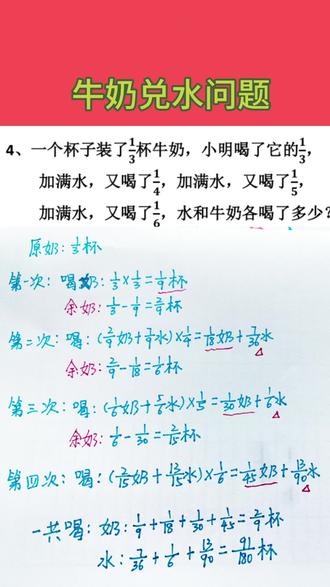 牛奶兑水问题
4、一个杯子装了1/3杯牛奶，小明喝了它的1/3，
加满水，又喝了1/4，加满水，又喝了1/5，
加满水，又喝了1/6，水和牛奶各喝了多少？
原奶：1/3杯
第一次：喝奶：1/3×1/3=1/9杯
余奶：1/3-1/9=2/9杯
第二次：喝：(2/9奶+7/9水)×1/4=1/18奶+7/36水
余奶：2/9-1/18=1/6杯
第三次：喝：(1/6奶+5/6水)×1/5=1/30奶+1/6水
余奶：1/6-1/30=2/15杯
第四次：喝：(2/15奶+13/15水)×1/6=1/45奶+13/90水
一共喝：奶：1/9+1/18+1/30+1/45=2/9杯
水：7/36+1/6+13/90=91/180杯